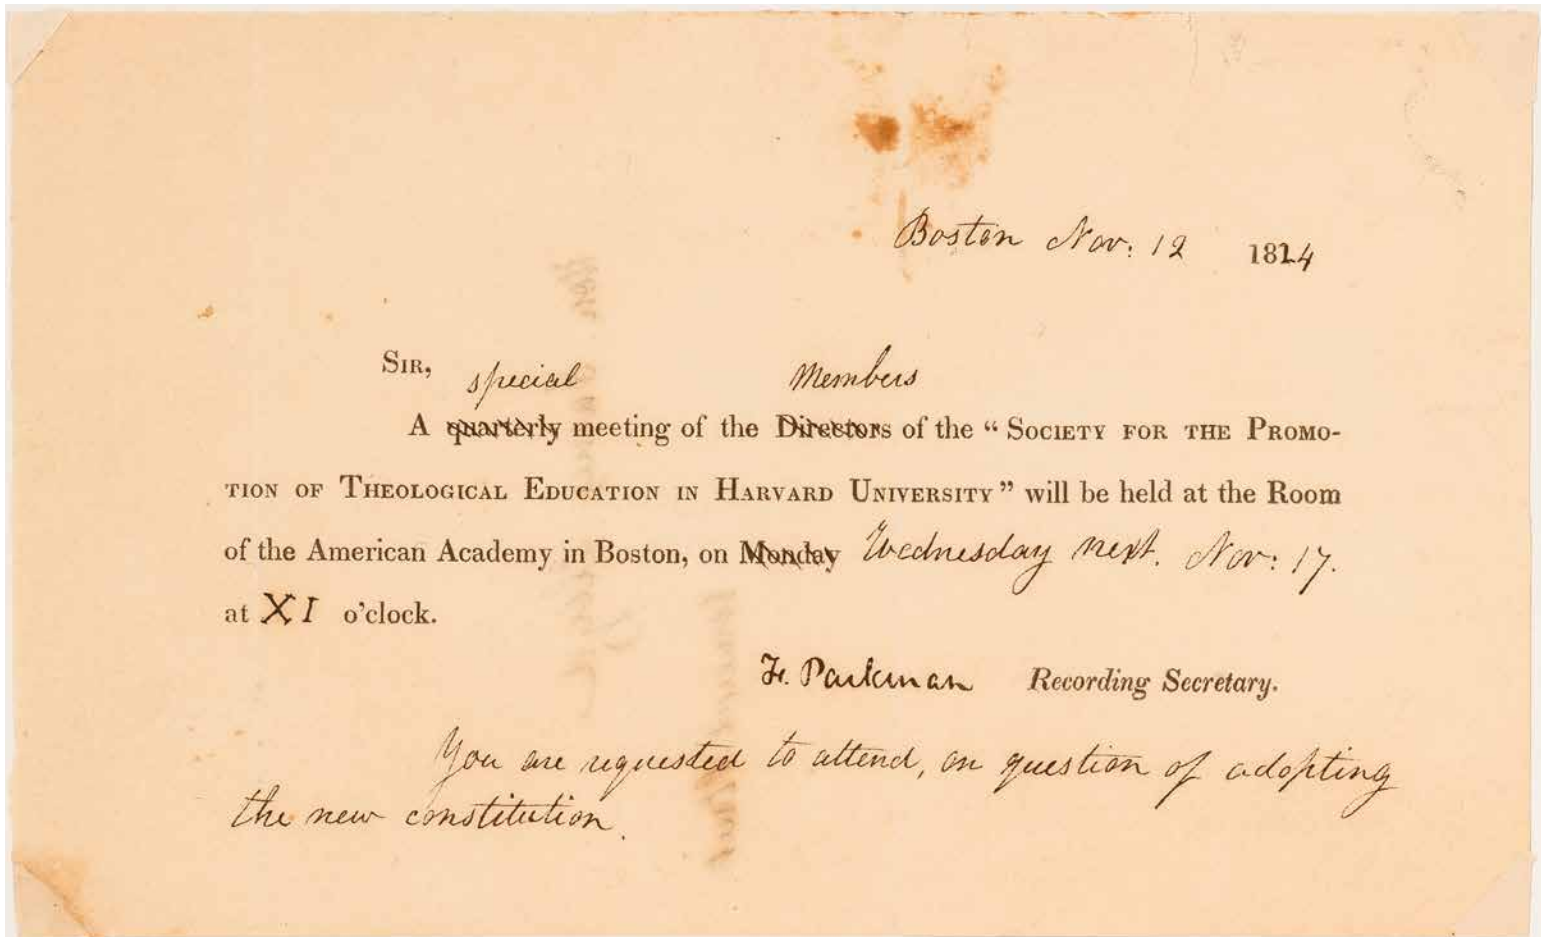 Boston Nov: 12 1824
SIR,
special Members
A quarterly meeting of the Directors of the “ SOCIETY FOR THE PROMO-
TION OF THEOLOGICAL EDUCATION IN HARVARD UNIVERSITY” will be held at the Room
of the American Academy in Boston, on Monday Wednesday next. Nov: 17.
at XI o’clock.
F. Parkman Recording Secretary.
You are requested to attend, on question of adopting
the new constitution.